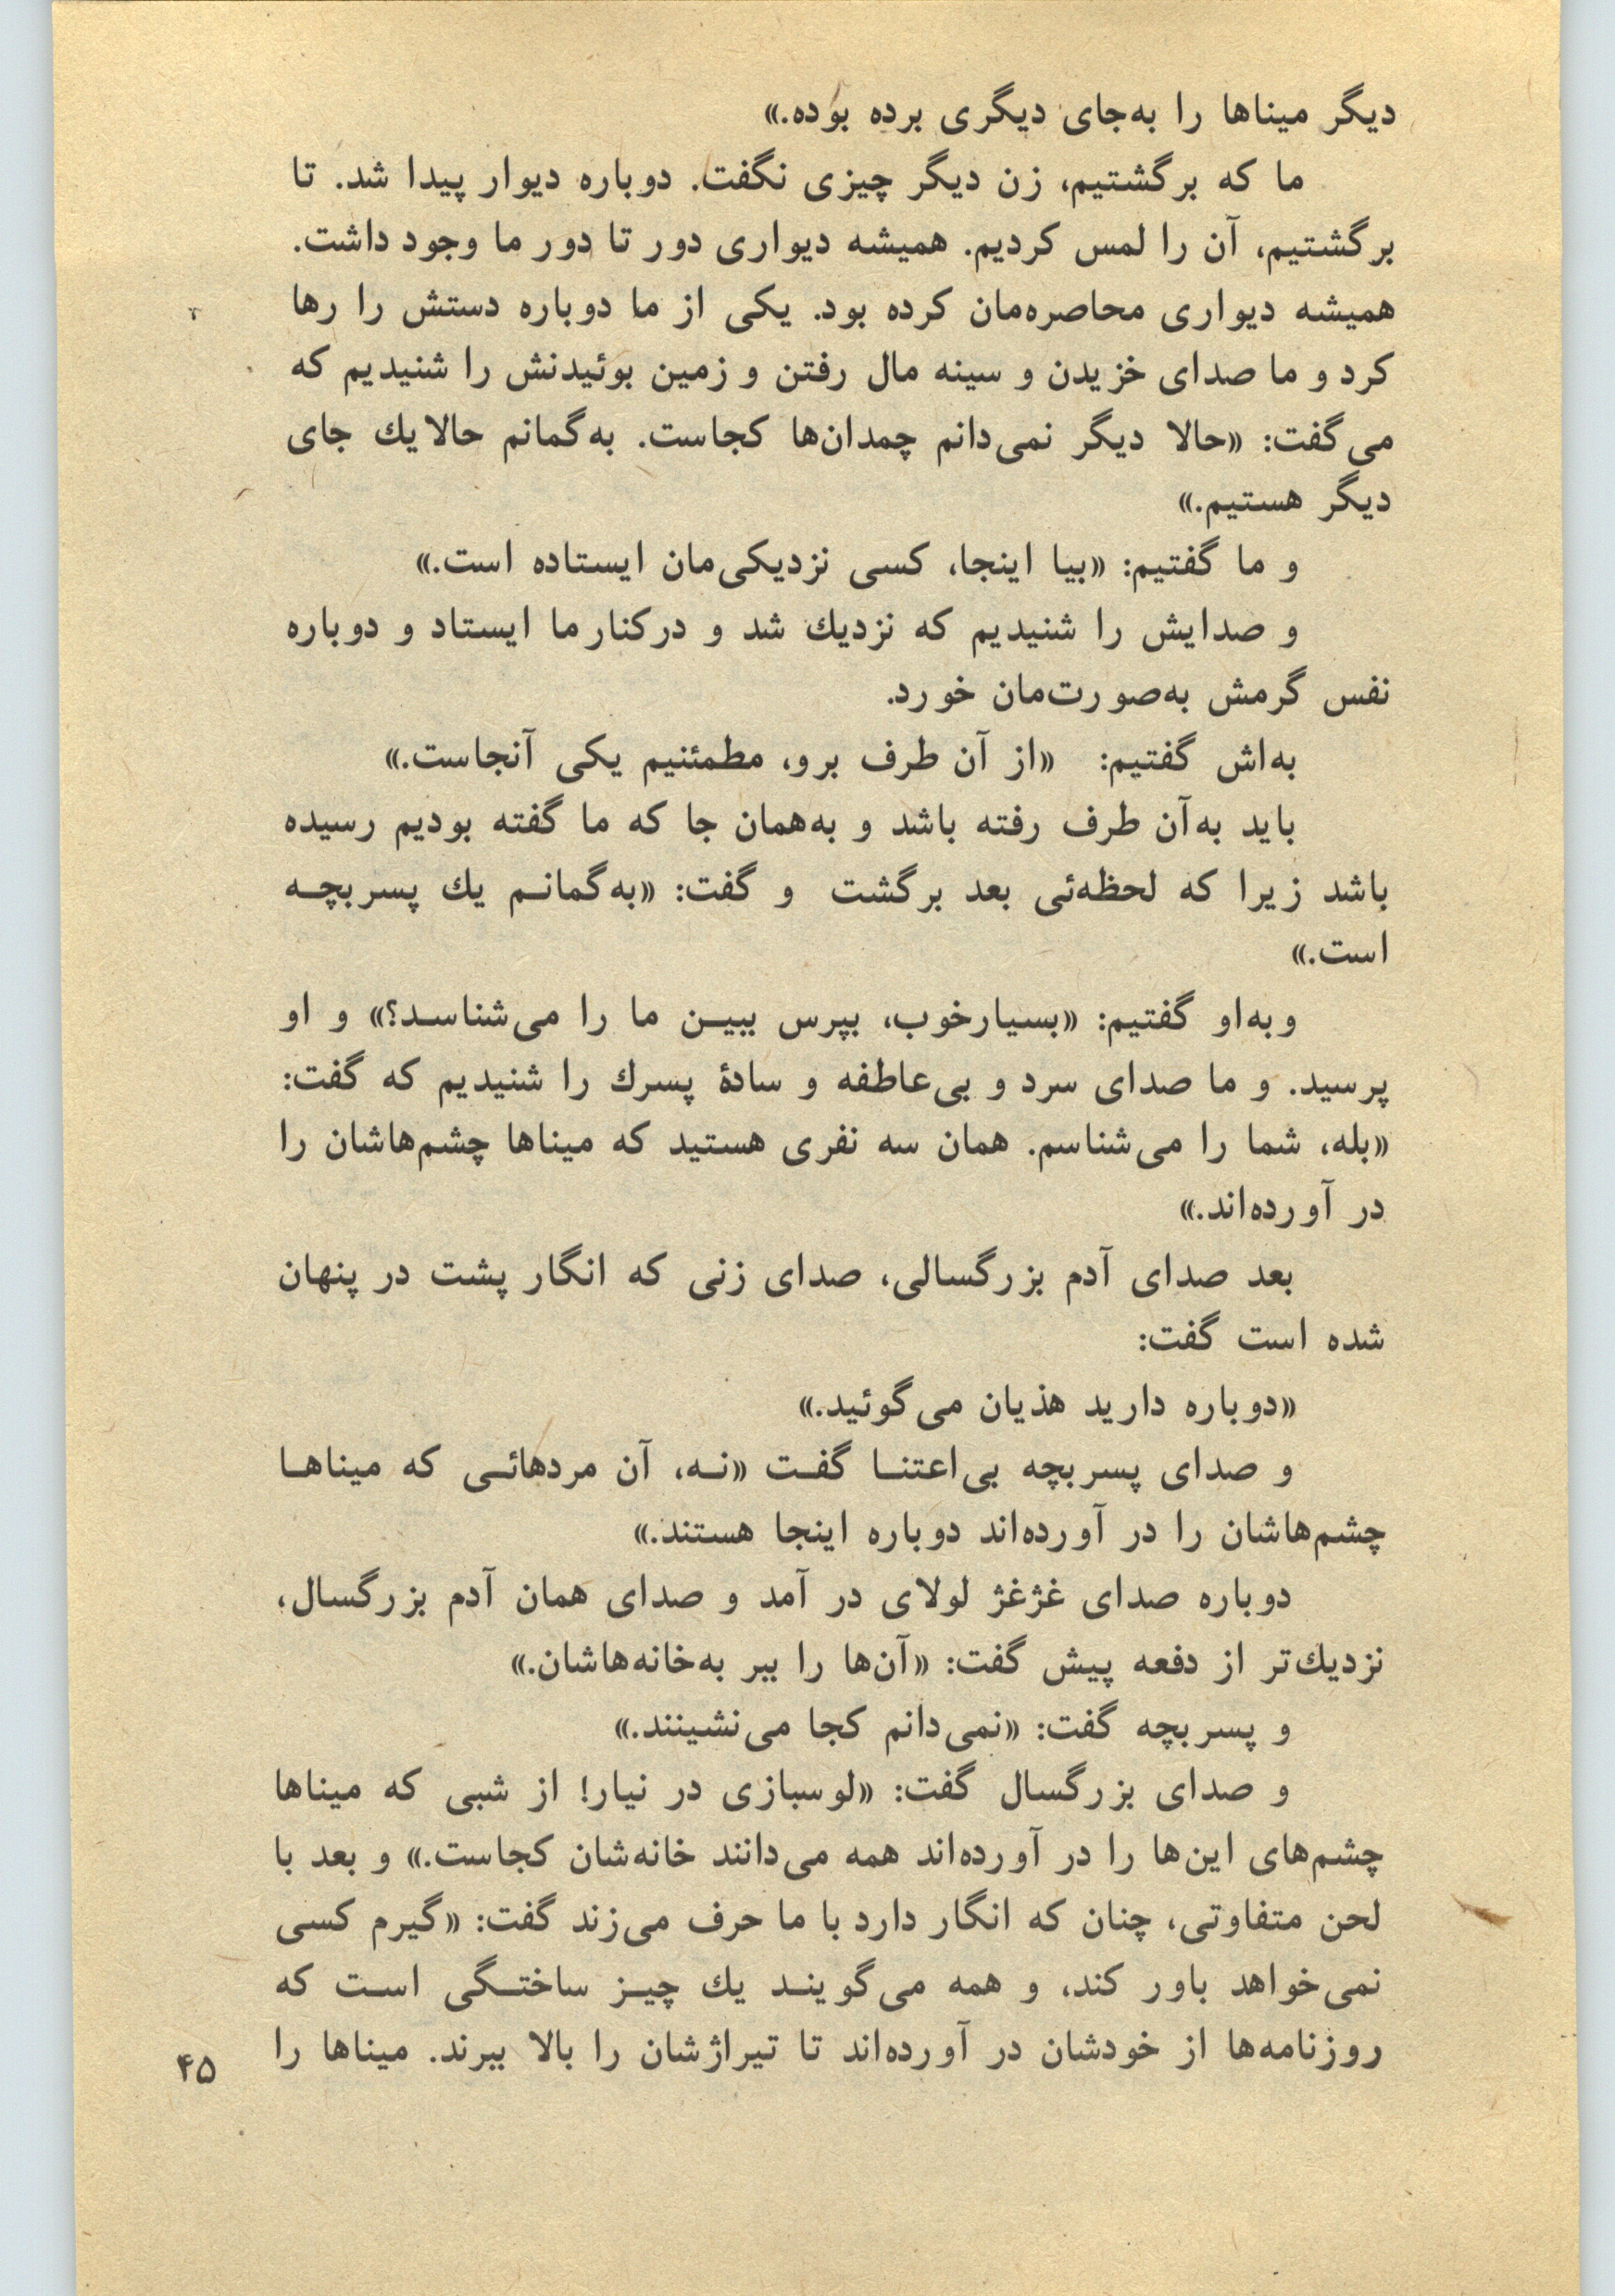 دیگر میناها را به‌جای دیگری برده بوده.»
ما که برگشتیم، زن دیگر چیزی نگفت. دوباره دیوار پیدا شد. تا
برگشتیم، آن را لمس کردیم. همیشه دیواری دور تا دور ما وجود داشت.
همیشه دیواری محاصره‌مان کرده بود. یکی از ما دوباره دستش را رها
کرد و ما صدای خزیدن و سینه مال رفتن و زمین بوئیدنش را شنیدیم که
می‌گفت: «حالا دیگر نمی‌دانم چمدان‌ها کجاست. به‌گمانم حالا یك جای
دیگر هستیم.»
و ما گفتیم: «بیا اینجا، کسی نزدیکی‌مان ایستاده است.»
و صدایش را شنیدیم که نزدیك شد و درکنار ما ایستاد و دوباره
نفس گرمش به‌صورت‌مان خورد.
به‌اش گفتیم: «از آن طرف برو، مطمئنیم یکی آنجاست.»
باید به‌آن طرف رفته باشد و به‌همان جا که ما گفته بودیم رسیده
باشد زیرا که لحظه‌ئی بعد برگشت و گفت: «به‌گمانـم یك پسربچـه
است.»
و به‌او گفتیم: «بسیارخوب، بپرس ببیـن ما را می‌شناسـد؟» و او
پرسید. و ما صدای سرد و بی‌عاطفه و سادهٔ پسرك را شنیدیم که گفت:
«بله، شما را می‌شناسم. همان سه نفری هستید که میناها چشم‌هاشان را
در آورده‌اند.»
بعد صدای آدم بزرگسالی، صدای زنی که انگار پشت در پنهان
شده است گفت:
«دوباره دارید هذیان می‌گوئید.»
و صدای پسربچه بی‌اعتنـا گفـت «نـه، آن مردهائـی که میناهـا
چشم‌هاشان را در آورده‌اند دوباره اینجا هستند.»
دوباره صدای غژغژ لولای در آمد و صدای همان آدم بزرگسال،
نزدیك‌تر از دفعه پیش گفت: «آن‌ها را ببر به‌خانه‌هاشان.»
و پسربچه گفت: «نمی‌دانم کجا می‌نشینند.»
و صدای بزرگسال گفت: «لوسبازی در نیار! از شبی که میناها
چشم‌های این‌ها را در آورده‌اند همه می‌دانند خانه‌شان کجاست.» و بعد با
لحن متفاوتی، چنان که انگار دارد با ما حرف می‌زند گفت: «گیرم کسی
نمی‌خواهد باور کند، و همه می‌گوینـد یك چیـز ساختـگی اسـت که
روزنامه‌ها از خودشان در آورده‌اند تا تیراژشان را بالا ببرند. میناها را
۴۵